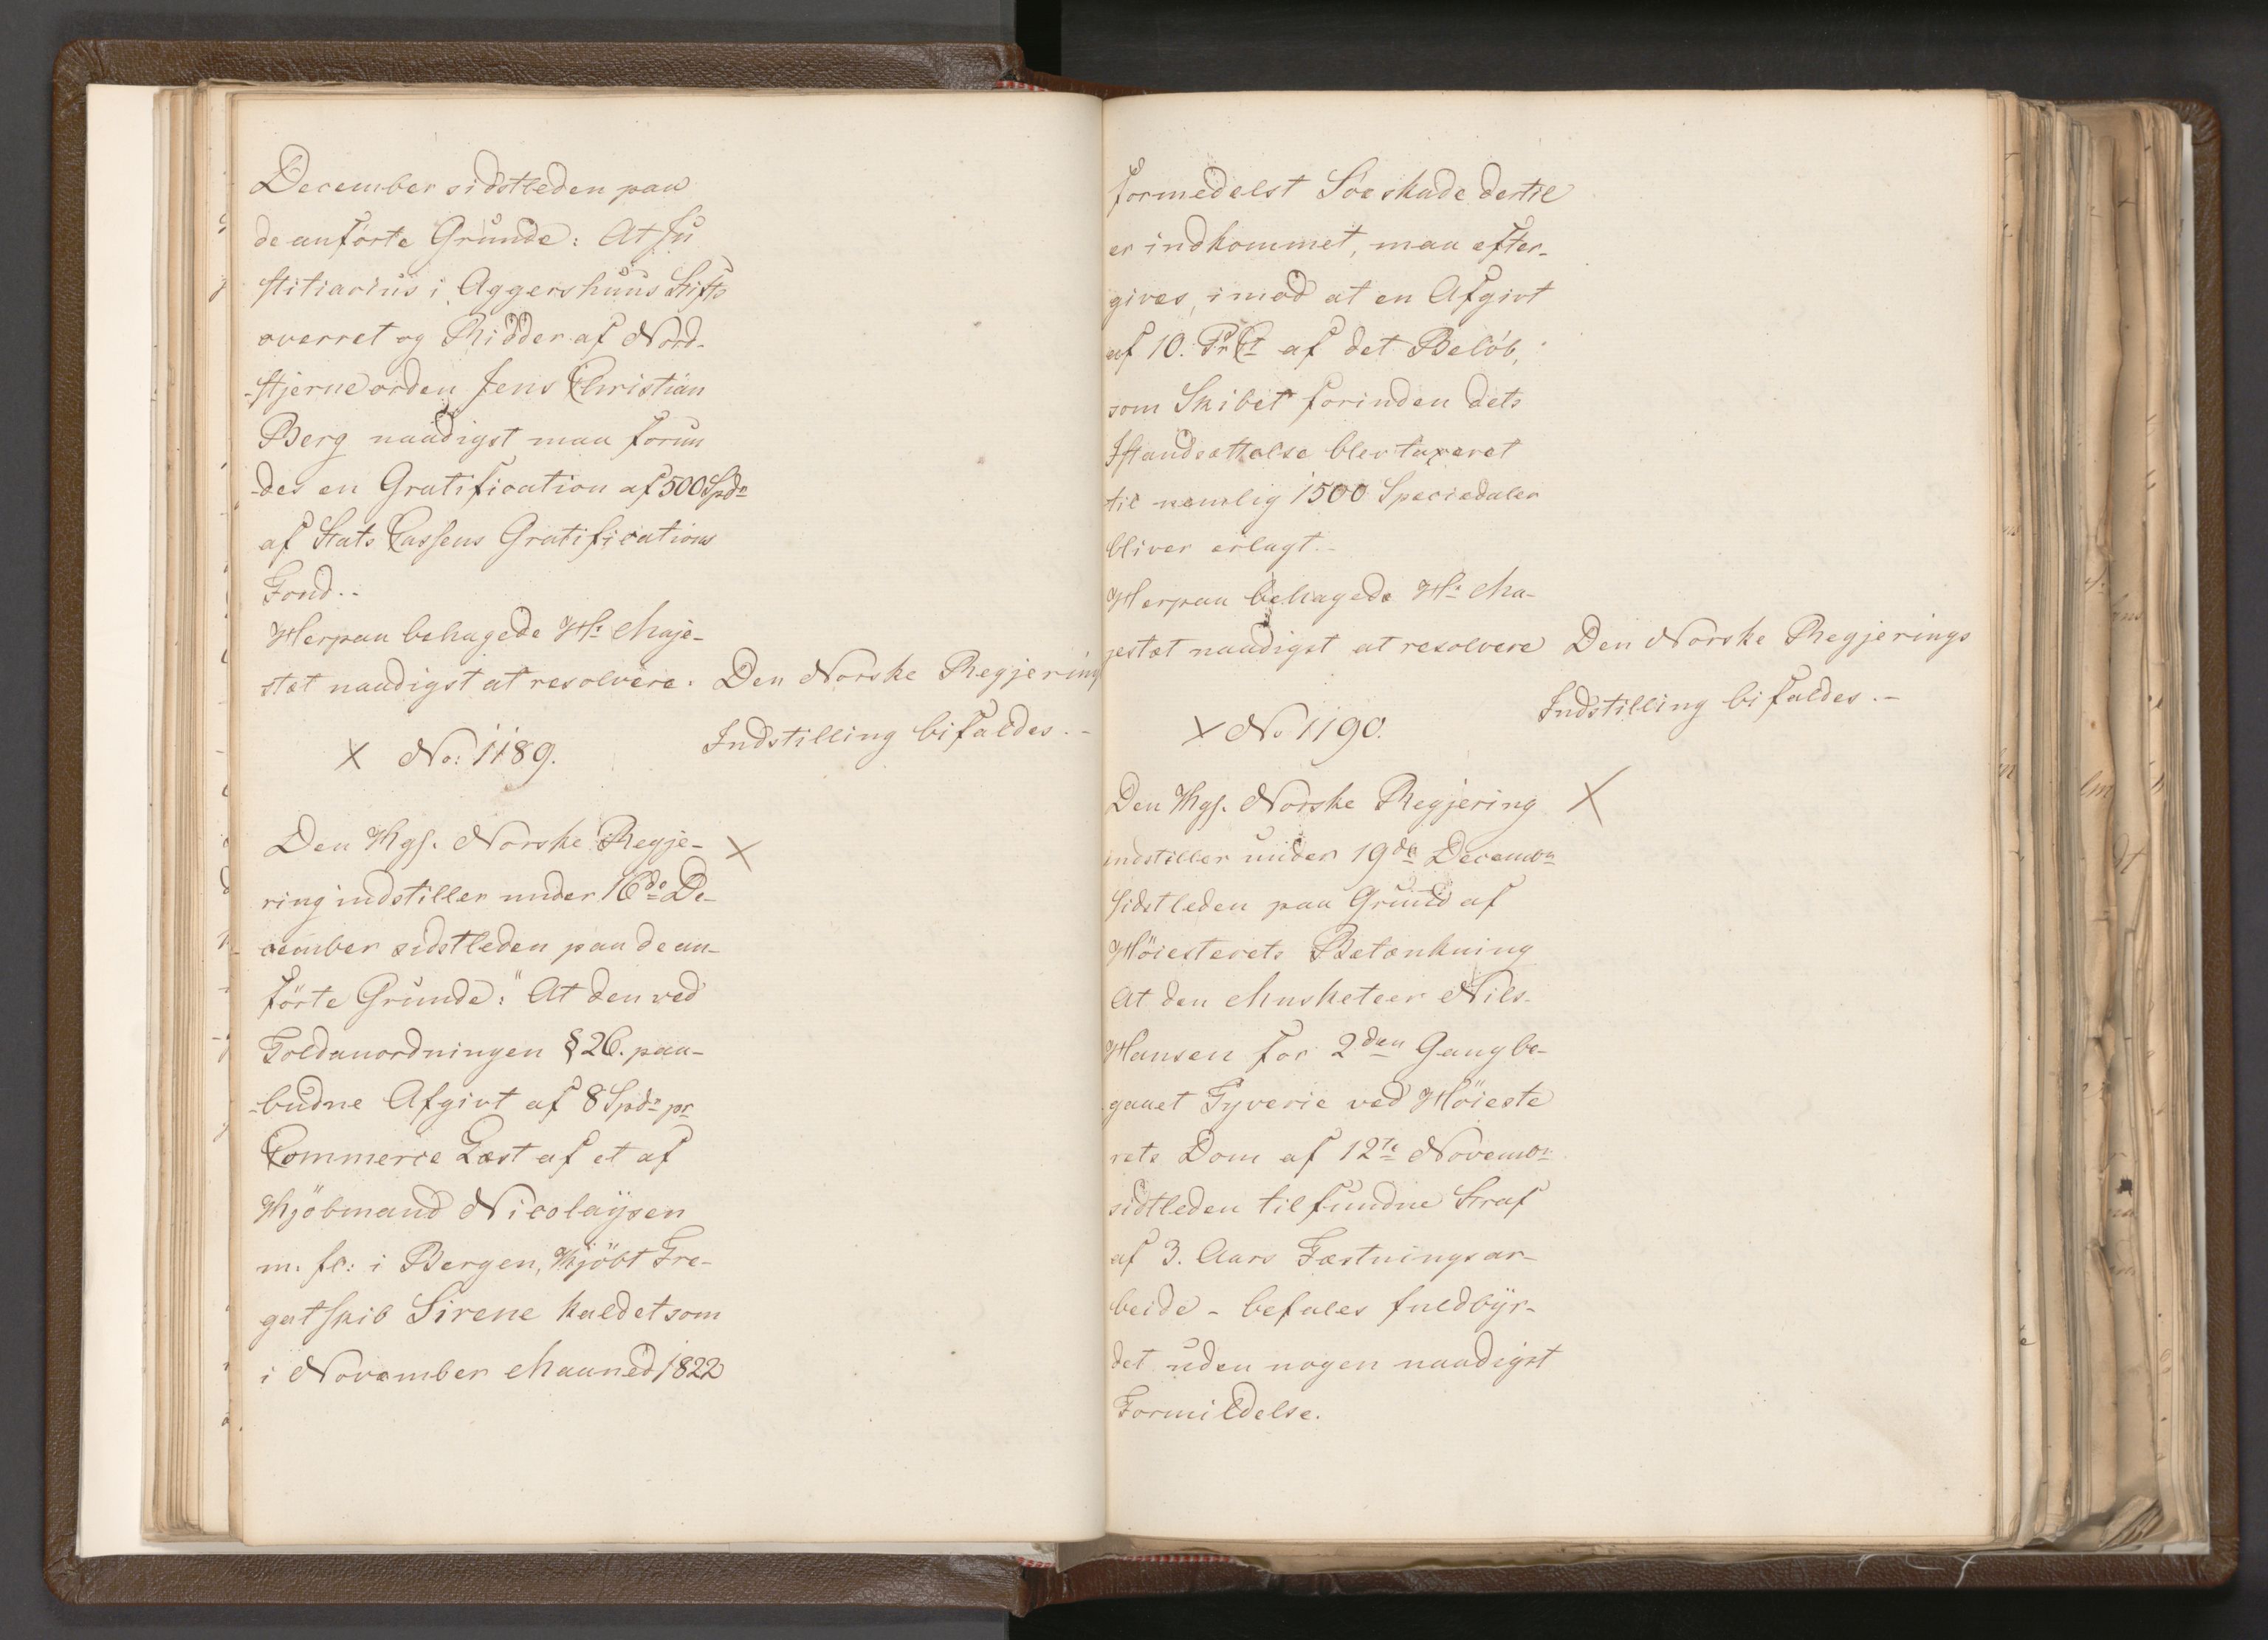 December sidstleden paa
de anførte Grunde: At Ju
stitiarius i Aggershuus Stifts
overret og Ridder af Nord-
-stjerneorden Jens Christian
Berg naadigst maa forun
-des en Gratification af 500 Spdr
af Stats Cassens Gratifications
Fond.-
Herpaa behagede Hs Maje-
stæt naadigst at resolvere. Den Norske Regjering
Indstilling bifaldes.-
X No: 1189.
Den Kgs. Norske Regje- X
ring indstiller under 16de De-
cember sidstleden paa de an-
førte Grunde: "At den ved
Toldanordningen § 26. paa-
-budne Afgivt af 8 Spdr pr
Commerce Læst af et af
Kjöbmand Nicolaÿsen
m: fl: i Bergen, Kjöbt Fre-
gatskib Sirene kaldet som
i November Maaned 1822
formedelst Söeskade dertil
er indkommet, maa efter-
gives, imod at en Afgivt
af 10. Pr Ct af det Belöb,
som Skibet forinden dets
Istandsættelse blev taxeret
til nemlig 1500 Speciedaler
bliver erlagt.-
Herpaa behagede Hs Ma-
jestæt naadigst at resolvere Den Norske Regjerings
Indstilling bifaldes.-
X No 1190.
Den Kgs. Norske Regjering X
indstiller under 19de Decembr
sidstleden paa Grund af
Höiesterets Betænkning
At den Musketeer Nils
Hansen for 2den Gang be-
gaaet Tyverie ved Höieste
rets Dom af 12te Novembr
sidtleden tilfundne Straf
af 3. Aars Fæstningsar-
beide - befales fuldbÿr-
det uden nogen naadigst
Formildelse.